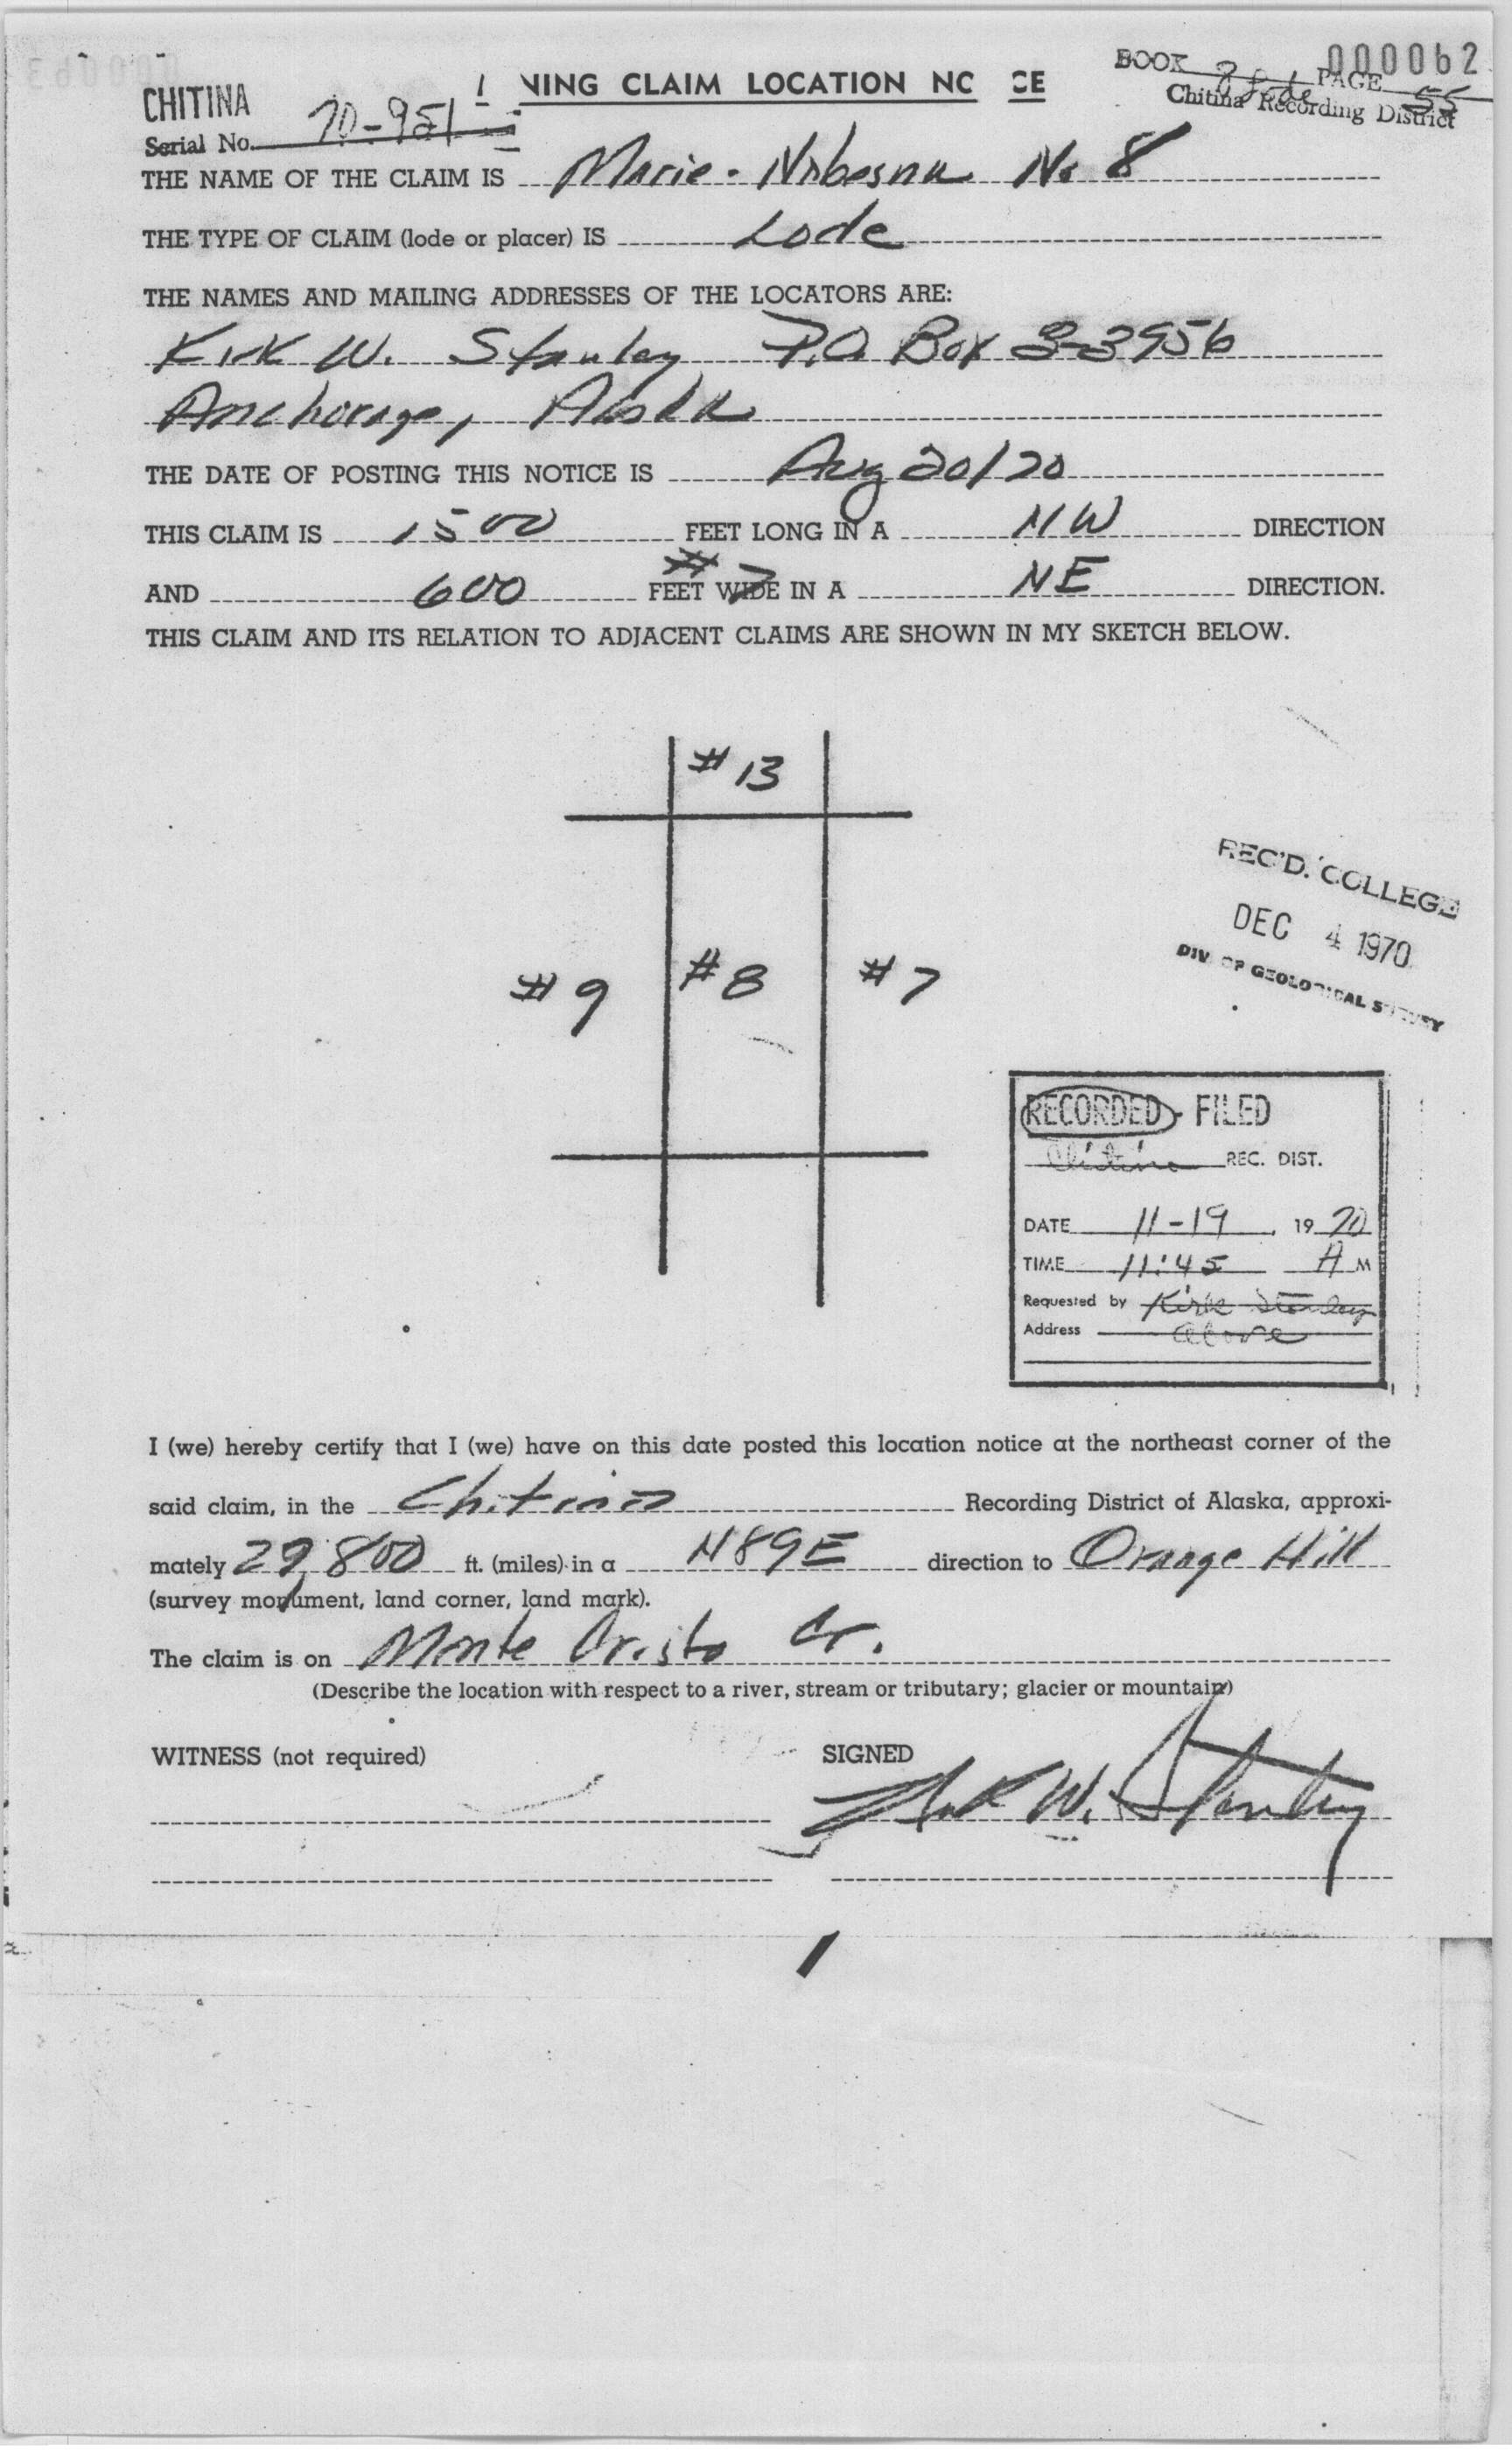 000062
BOOK 8 Lode PAGE 55
Chitina Recording District
NING CLAIM LOCATION NO CE
CHITINA
Serial No. 70-951
THE NAME OF THE CLAIM IS Marie - Nabesna No 8
THE TYPE OF CLAIM (lode or placer) IS Lode
THE NAMES AND MAILING ADDRESSES OF THE LOCATORS ARE:
Kirk W. Stanley P.O. Box 3-3956
Anchorage, Alaska
THE DATE OF POSTING THIS NOTICE IS Aug 20/70
THIS CLAIM IS 1500 FEET LONG IN A NW DIRECTION
# 7
AND 600 FEET WIDE IN A NE DIRECTION.
THIS CLAIM AND ITS RELATION TO ADJACENT CLAIMS ARE SHOWN IN MY SKETCH BELOW.
# 13
# 9 # 8 # 7
REC'D. COLLEGE
DEC 4 1970
DIV. OF GEOLOGICAL SURVEY
RECORDED - FILED
Chitina REC. DIST.
DATE 11-19, 19 70
TIME 11:45 A M
Requested by Kirk Stanley
Address above
I (we) hereby certify that I (we) have on this date posted this location notice at the northeast corner of the
said claim, in the Chitina Recording District of Alaska, approxi-
mately 29,800 ft. (miles) in a N89E direction to Orange Hill
(survey monument, land corner, land mark).
The claim is on Monte Cristo Cr.
(Describe the location with respect to a river, stream or tributary; glacier or mountain)
WITNESS (not required) SIGNED
Kirk W. Stanley